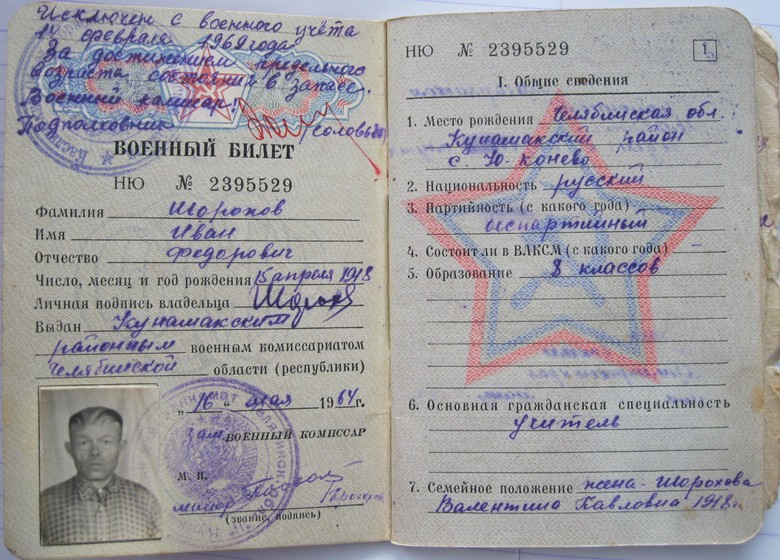 Исключен с военного учёта
14 февраля 1969 года
За достижением предельного
возраста состояния в запасе.
Военный комиссар:
Подполковник
ВОЕННЫЙ БИЛЕТ
НЮ № 2395529
Фамилия Шорохов
Имя Иван
Отчество Федорович
Число, месяц и год рождения 15 апреля 1918
Личная подпись владельца Шорох
Выдан Кунашакским
районным военным комиссариатом
Челябинской области (республики)
„16“ мая 1964 г.
Зам. ВОЕННЫЙ КОМИССАР
М. П.
майор
(звание, подпись)
НЮ № 2395529
1
I. Общие сведения
1. Место рождения Челябинская обл.
Кунашакский район
с. Ю-Конево
2. Национальность русский
3. Партийность (с какого года)
беспартийный
4. Состоит ли в ВЛКСМ (с какого года)
5. Образование 8 классов
6. Основная гражданская специальность
учитель
7. Семейное положение жена-Шорохова
Валентина Павловна 1918г